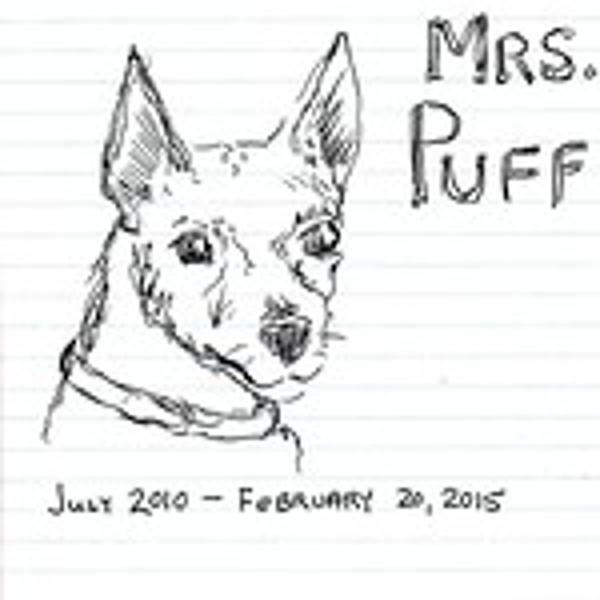 MRS.
PUFF
JULY 2010 - FEBRUARY 20, 2015